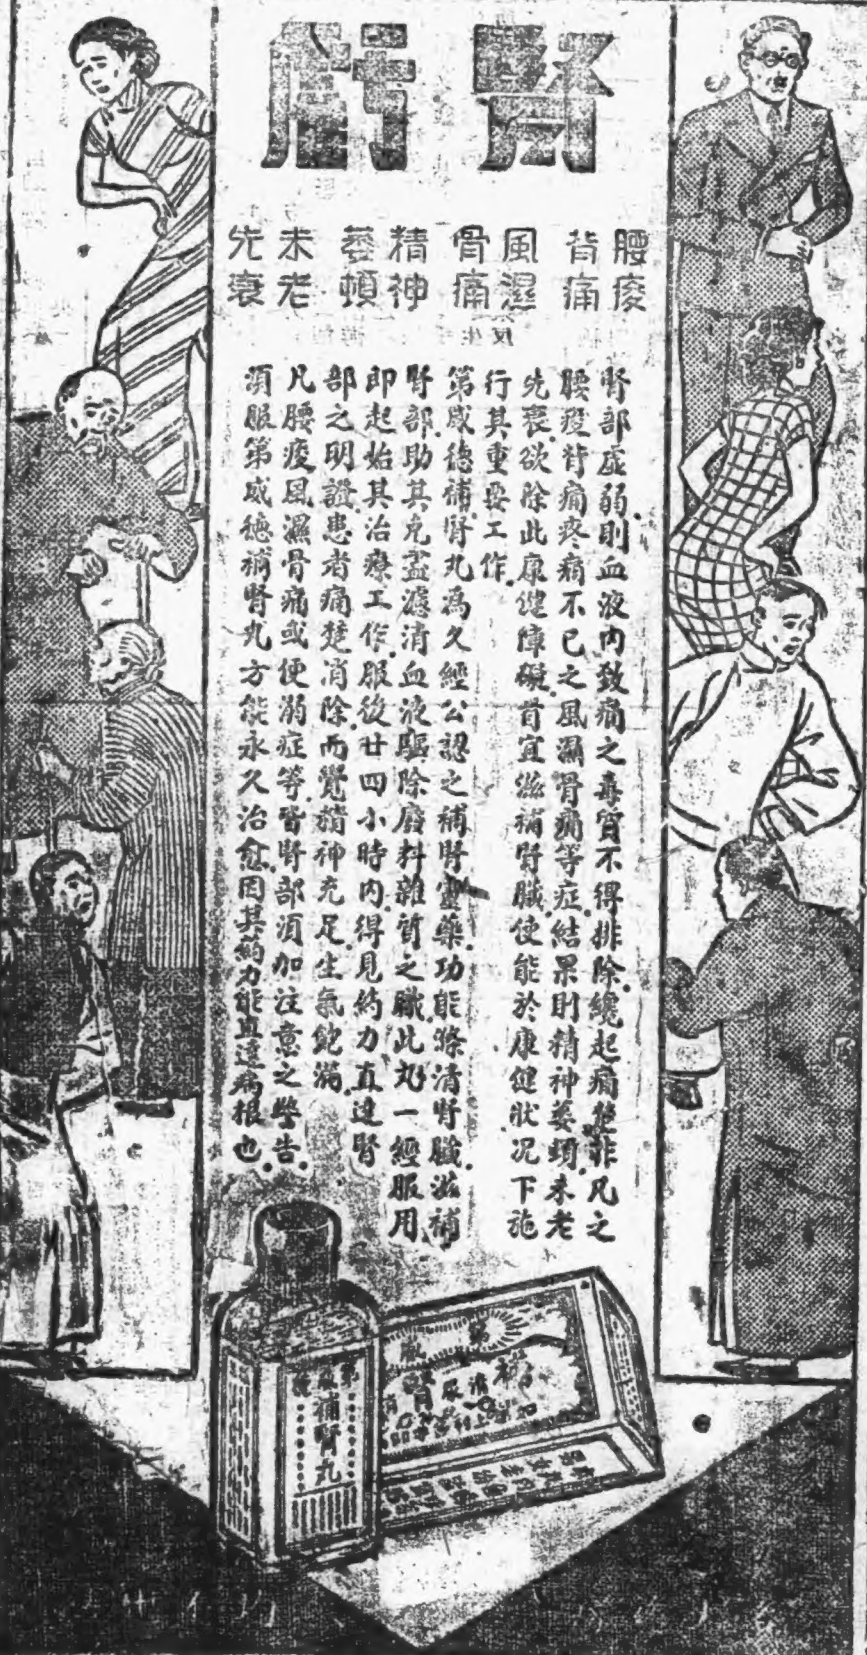 腎虧
腰痠
背痛
風濕
骨痛
精神
萎頓
未老
先衰
腎部虛弱則血液內致痛之毒質不得排除纔起痛楚非凡之
腰痠背痛疼痛不已之風濕骨痛等症結果則精神萎頓未老
先衰欲除此康健障礙首宜滋補腎臟使能於康健狀况下施
行其重要工作
第威德補腎丸為久經公認之補腎靈藥功能滌清腎臟滋補
腎部助其克盡濾清血液驅除廢料雜質之職此丸一經服用
即起始其治療工作服後廿四小時內得見約力直達腎
部之明證患者痛楚消除而覺精神充足生氣飽滿
凡腰痠風濕骨痛或便溺症等皆腎部須加注意之警告
須服第威德補腎丸方能永久治愈因其葯力能直達病根也
第威德
補腎丸